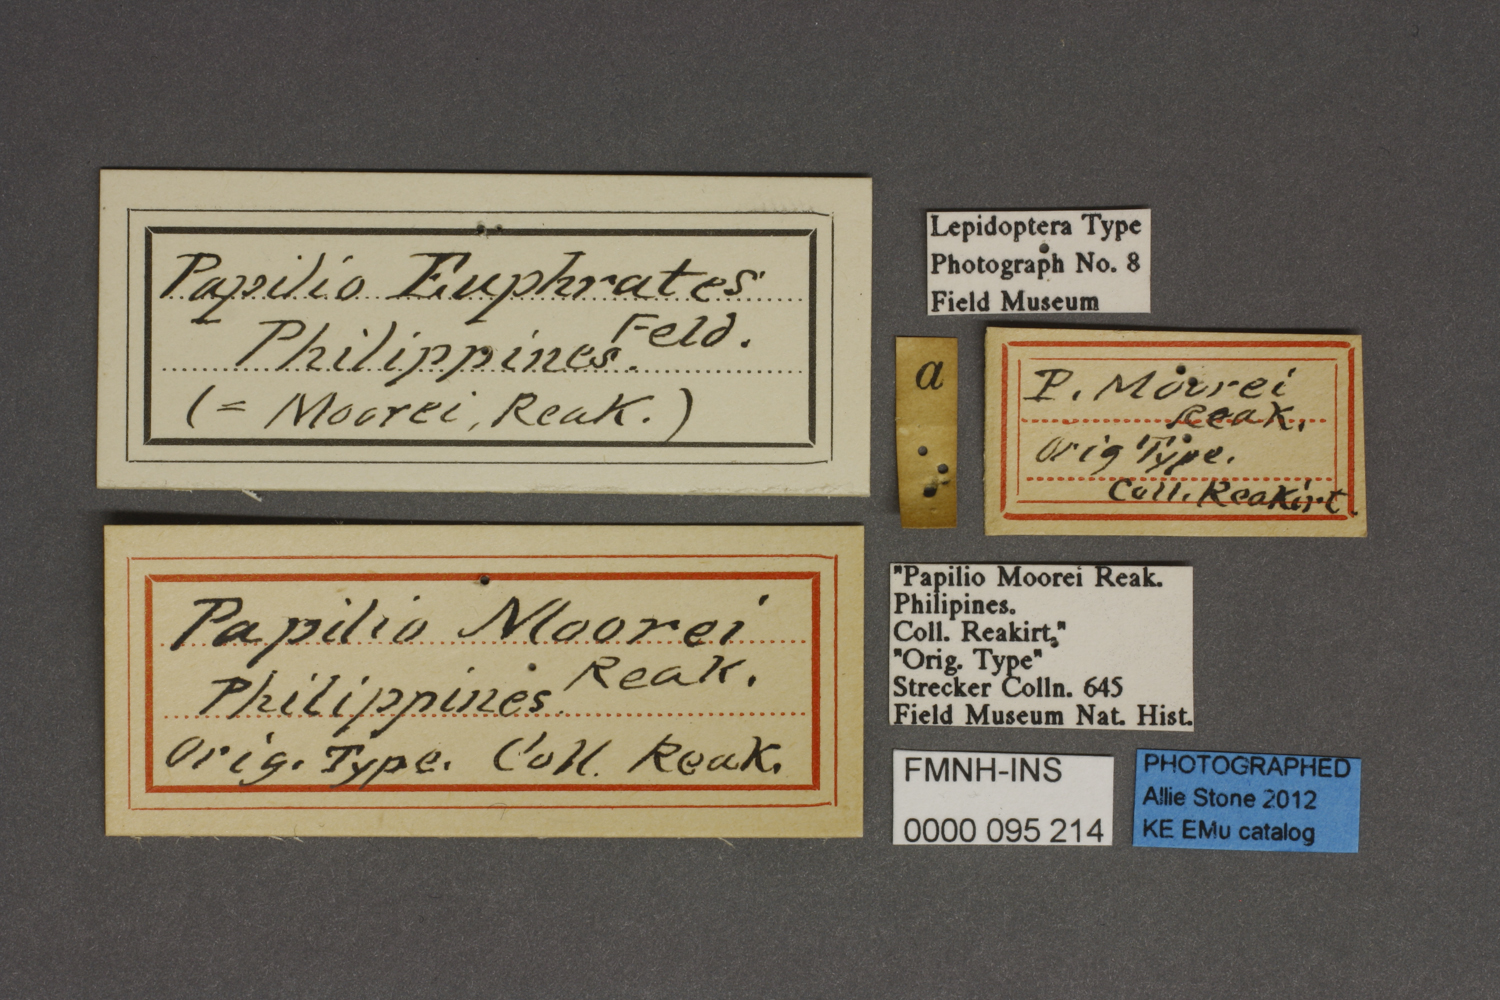 Papilio Euphrates
Feld.
Philippines.
(= Moorei, Reak.)
Papilio Moorei
Reak.
Philippines.
Orig. Type. Coll. Reak.
Lepidoptera Type
Photograph No. 8
Field Museum
a
P. Moorei
Reak.
Orig Type.
Coll. Reakirt.
"Papilio Moorei Reak.
Philipines.
Coll. Reakirt,"
"Orig. Type"
Strecker Colln. 645
Field Museum Nat. Hist.
FMNH-INS
0000 095 214
PHOTOGRAPHED
Allie Stone 2012
KE EMu catalog